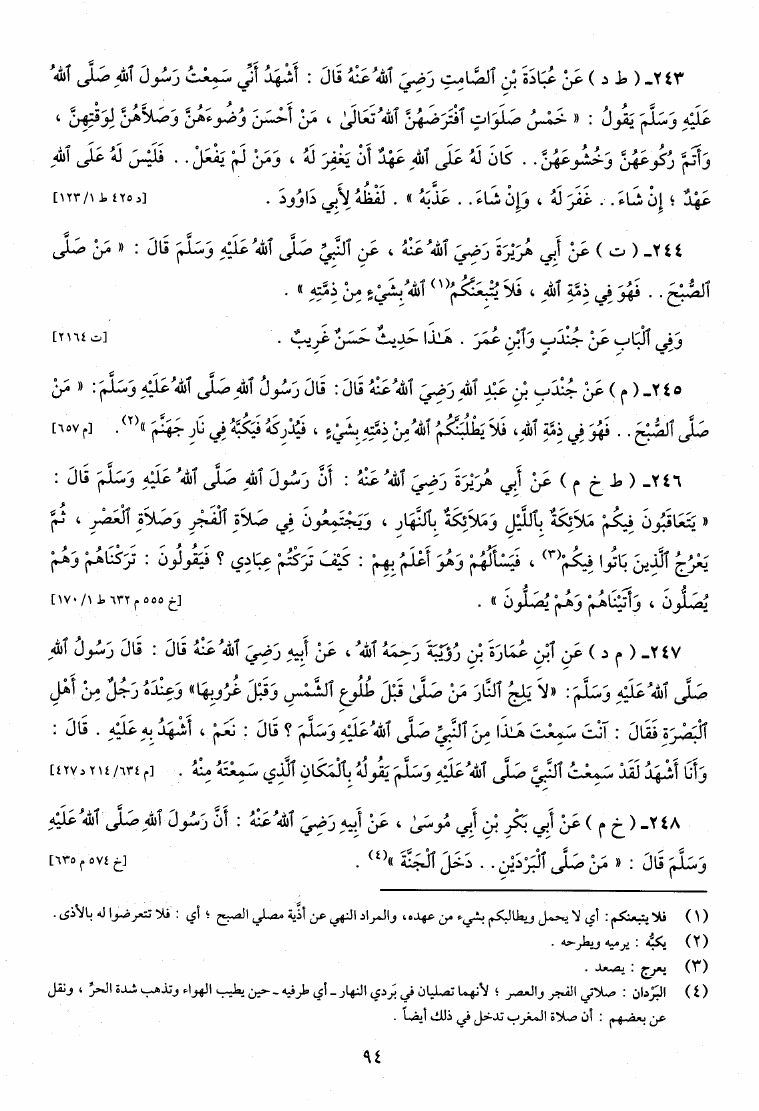 ٢٤٣ـ ( ط د ) عَنْ عُبَادَةَ بْنِ ٱلصَّامِتِ رَضِيَ ٱللهُ عَنْهُ قَالَ : أَشْهَدُ أَنِّي سَمِعْتُ رَسُولَ ٱللهِ صَلَّى ٱللهُ
عَلَيْهِ وَسَلَّمَ يَقُولُ : « خَمْسُ صَلَوَاتٍ ٱفْتَرَضَهُنَّ ٱللهُ تَعَالَىٰ ، مَنْ أَحْسَنَ وُضُوءَهُنَّ وَصَلاَّهُنَّ لِوَقْتِهِنَّ ،
وَأَتَمَّ رُكُوعَهُنَّ وَخُشُوعَهُنَّ . . كَانَ لَهُ عَلَى ٱللهِ عَهْدٌ أَنْ يَغْفِرَ لَهُ ، وَمَنْ لَمْ يَفْعَلْ . . فَلَيْسَ لَهُ عَلَى ٱللهِ
عَهْدٌ ؛ إِنْ شَاءَ . . غَفَرَ لَهُ ، وَإِنْ شَاءَ . . عَذَّبَهُ » . لَفْظُهُ لِأَبِي دَاوُودَ . [د ٤٢٥ ط ١/ ١٢٣]
٢٤٤ـ ( ت ) عَنْ أَبِي هُرَيْرَةَ رَضِيَ ٱللهُ عَنْهُ ، عَنِ ٱلنَّبِيِّ صَلَّى ٱللهُ عَلَيْهِ وَسَلَّمَ قَالَ : « مَنْ صَلَّى
ٱلصُّبْحَ . . فَهُوَ فِي ذِمَّةِ ٱللهِ ، فَلاَ يُتْبِعَنَّكُمُ(١) ٱللهُ بِشَيْءٍ مِنْ ذِمَّتِهِ » .
وَفِي ٱلْبَابِ عَنْ جُنْدَبٍ وَٱبْنِ عُمَرَ . هَـٰذَا حَدِيثٌ حَسَنٌ غَرِيبٌ . [ت ٢١٦٤]
٢٤٥ـ ( م ) عَنْ جُنْدَبِ بْنِ عَبْدِ ٱللهِ رَضِيَ ٱللهُ عَنْهُ قَالَ : قَالَ رَسُولُ ٱللهِ صَلَّى ٱللهُ عَلَيْهِ وَسَلَّمَ : « مَنْ
صَلَّى ٱلصُّبْحَ . . فَهُوَ فِي ذِمَّةِ ٱللهِ ، فَلاَ يَطْلُبَنَّكُمُ ٱللهُ مِنْ ذِمَّتِهِ بِشَيْءٍ ، فَيُدْرِكَهُ فَيَكُبَّهُ فِي نَارِ جَهَنَّمَ »(٢) . [م ٦٥٧]
٢٤٦ـ ( ط خ م ) عَنْ أَبِي هُرَيْرَةَ رَضِيَ ٱللهُ عَنْهُ : أَنَّ رَسُولَ ٱللهِ صَلَّى ٱللهُ عَلَيْهِ وَسَلَّمَ قَالَ :
« يَتَعَاقَبُونَ فِيكُمْ مَلاَئِكَةٌ بِٱللَّيْلِ وَمَلاَئِكَةٌ بِٱلنَّهَارِ ، وَيَجْتَمِعُونَ فِي صَلاَةِ ٱلْفَجْرِ وَصَلاَةِ ٱلْعَصْرِ ، ثُمَّ
يَعْرُجُ ٱلَّذِينَ بَاتُوا فِيكُمْ(٣) ، فَيَسْأَلُهُمْ وَهُوَ أَعْلَمُ بِهِمْ : كَيْفَ تَرَكْتُمْ عِبَادِي ؟ فَيَقُولُونَ : تَرَكْنَاهُمْ وَهُمْ
يُصَلُّونَ ، وَأَتَيْنَاهُمْ وَهُمْ يُصَلُّونَ » . [خ ٥٥٥ م ٦٣٢ ط ١/ ١٧٠]
٢٤٧ـ ( م د ) عَنِ ٱبْنِ عُمَارَةَ بْنِ رُؤَيْبَةَ رَحِمَهُ ٱللهُ ، عَنْ أَبِيهِ رَضِيَ ٱللهُ عَنْهُ قَالَ : قَالَ رَسُولُ ٱللهِ
صَلَّى ٱللهُ عَلَيْهِ وَسَلَّمَ : «لاَ يَلِجُ ٱلنَّارَ مَنْ صَلَّىٰ قَبْلَ طُلُوعِ ٱلشَّمْسِ وَقَبْلَ غُرُوبِهَا» وَعِنْدَهُ رَجُلٌ مِنْ أَهْلِ
ٱلْبَصْرَةِ فَقَالَ : آنْتَ سَمِعْتَ هَـٰذَا مِنَ ٱلنَّبِيِّ صَلَّى ٱللهُ عَلَيْهِ وَسَلَّمَ ؟ قَالَ : نَعَمْ ، أَشْهَدُ بِهِ عَلَيْهِ . قَالَ :
وَأَنَا أَشْهَدُ لَقَدْ سَمِعْتُ ٱلنَّبِيَّ صَلَّى ٱللهُ عَلَيْهِ وَسَلَّمَ يَقُولُهُ بِٱلْمَكَانِ ٱلَّذِي سَمِعْتَهُ مِنْهُ . [م ٦٣٤/ ٢١٤ د ٤٢٧]
٢٤٨ـ ( خ م ) عَنْ أَبِي بَكْرِ بْنِ أَبِي مُوسَىٰ ، عَنْ أَبِيهِ رَضِيَ ٱللهُ عَنْهُ : أَنَّ رَسُولَ ٱللهِ صَلَّى ٱللهُ عَلَيْهِ
وَسَلَّمَ قَالَ : « مَنْ صَلَّى ٱلْبَرْدَيْنِ . . دَخَلَ ٱلْجَنَّةَ »(٤) . [خ ٥٧٤ م ٦٣٥]
(١) فلا يتبعنكم : أي لا يحمل ويطالبكم بشيء من عهده، والمراد النهي عن أذية مصلي الصبح ؛ أي : فلا تتعرضوا له بالأذى .
(٢) يكبُّه : يرميه ويطرحه .
(٣) يعرج : يصعد .
(٤) البَرْدان : صلاتي الفجر والعصر ؛ لأنهما تصليان في بَردي النهار ـ أي طرفيه ـ حين يطيب الهواء وتذهب شدة الحرِّ ، ونقل
عن بعضهم : أن صلاة المغرب تدخل في ذلك أيضاً .
٩٤